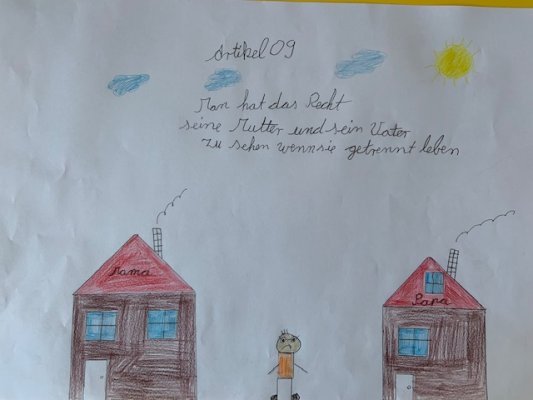 Artikel 09
Man hat das Recht
seine Mutter und sein Vater
zu sehen wenn sie getrennt leben
Mama
Papa